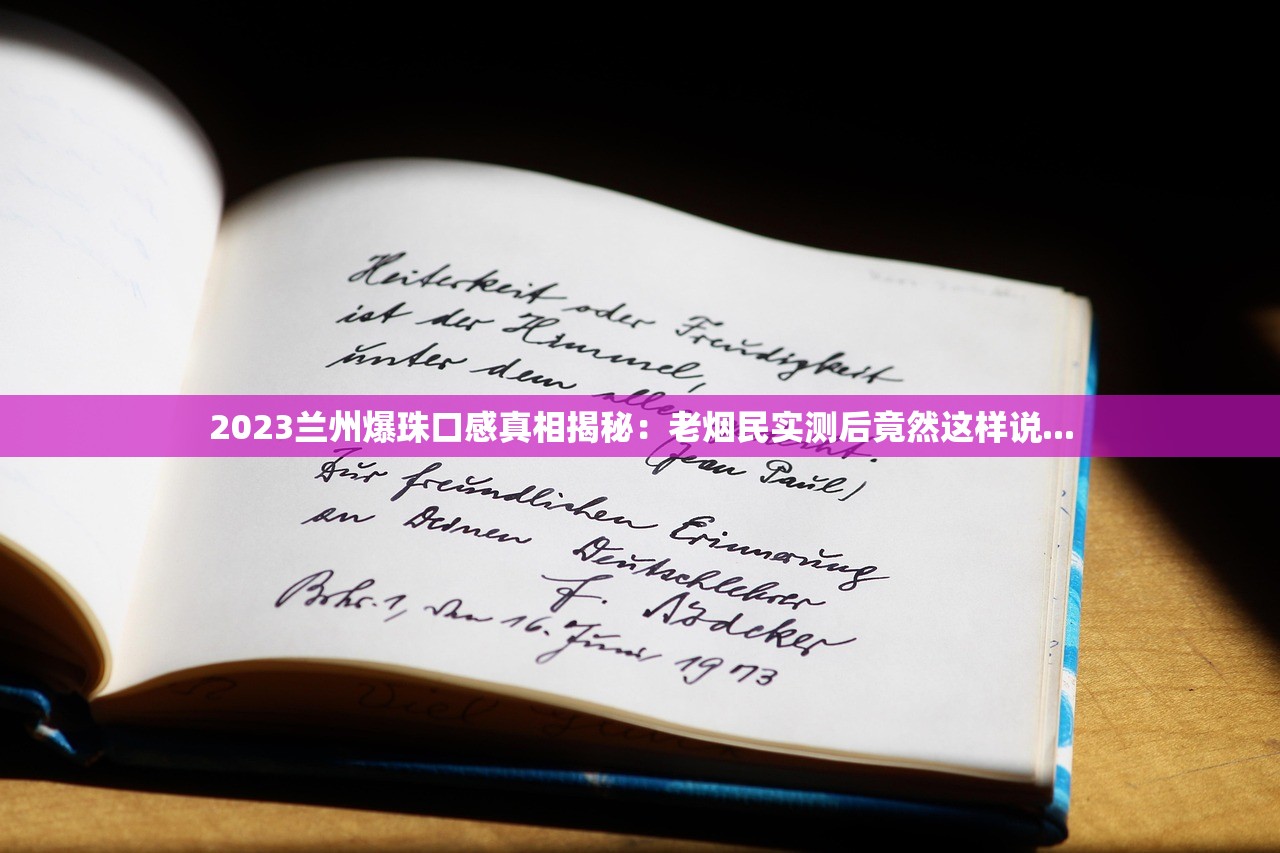 Heiterkeit oder Freudigkeit
ist der Himmel,
unter dem alles
2023兰州爆珠口感真相揭秘：老烟民实测后竟然这样说...
(Jean Paul)
Zur freundlichen Erinnerung
an Deinen Deutschlehrer
F.
den 16. Juni 1973
Viel